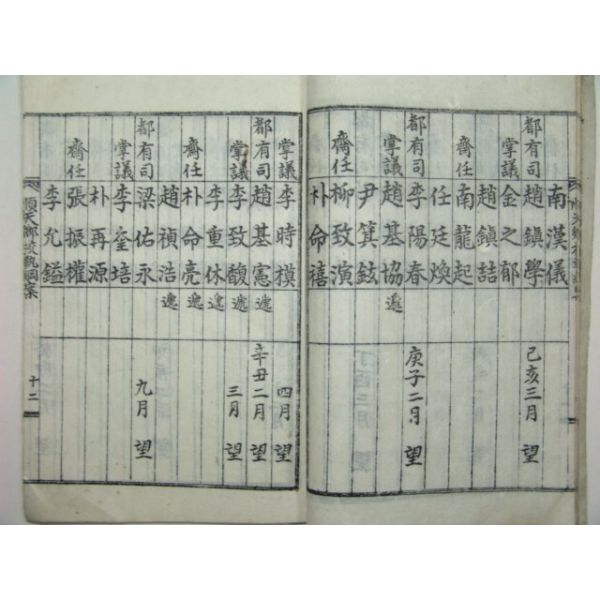 南漢儀
都有司 趙鎭學 己亥三月 望
掌議 金之郁
趙鎭喆
齋任 南龍起
任廷煥
都有司 李陽春 庚子二月 望
掌議 趙基協 遞
尹箕鉉
齋任 柳致演
朴命禧
掌議 李時模 四月 望
都有司 趙基憲 遞 辛丑二月 望
掌議 李致馥 遞 三月 望
李重休 遞
齋任 朴命亮 遞
趙禎浩 遞
都有司 梁佑永 九月 望
掌議 李奎培
朴再源
齋任 張振權
李允鎰
順天鄕校執綱案 十二